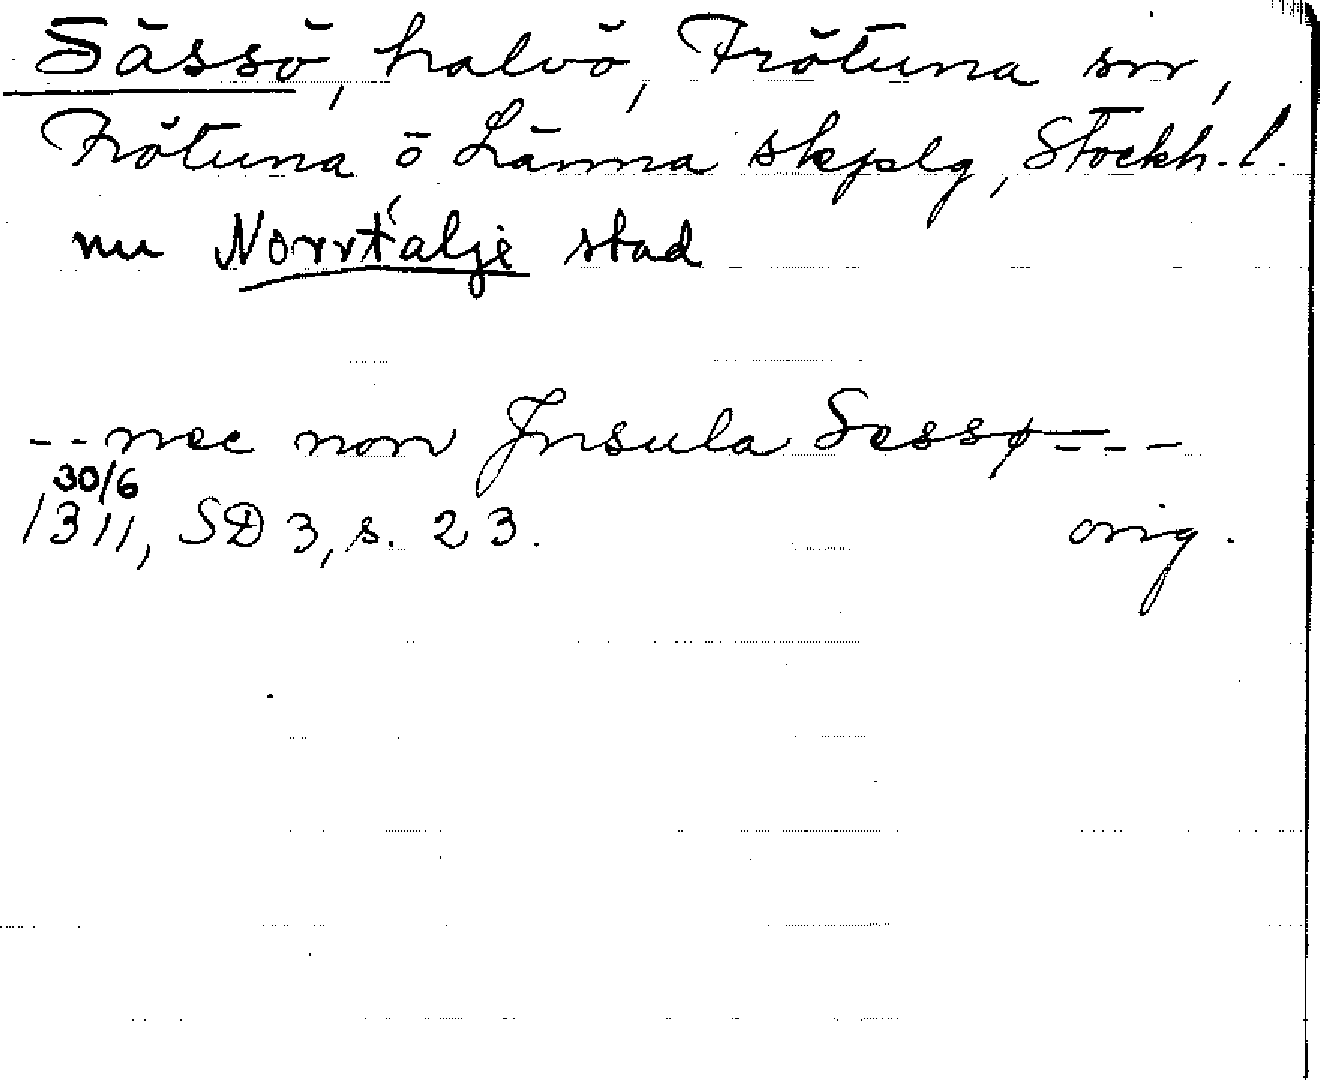 Sässö, halvö, Frötuna sn,
Frötuna o Länna skplg, Stockh. l.
nu Norrtälje stad
-- nec non Jnsula Sessø ---
30/6
1311, SD 3, s. 23. orig.